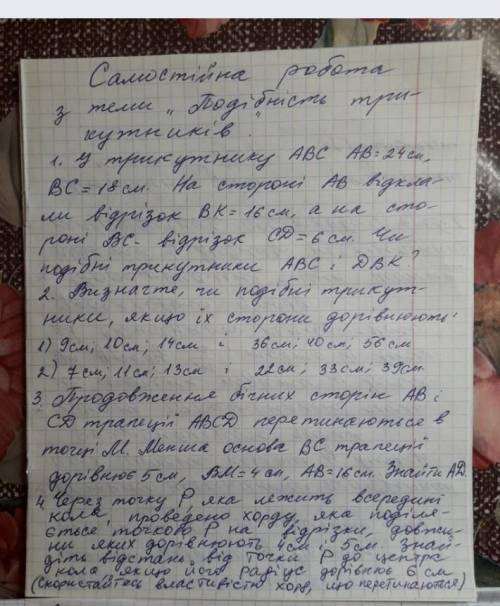 Самостійна робота
з теми „Подібність три-
кутників".
1. У трикутнику ABC AB=24см,
BC=18см. На стороні AB відкла-
ли відрізок BK=16см, а на сто-
роні BC- відрізок CD=6см. Чи
подібні трикутники ABC і DBK?
2. Визначте, чи подібні трикут-
ники, якщо їх сторони дорівнюють:
1) 9см; 10см; 14см і 36см; 40см; 56см
2) 7см; 11см; 13см і 22см; 33см; 39см.
3. Продовження бічних сторін AB і
CD трапеції ABCD перетинаються в
точці M. Менша основа BC трапеції
дорівнює 5см, BM=4см, AB=16см. Знайти AD.
4. Через точку P, яка лежить всередині
кола, проведено хорду, яка поділя-
ється точкою P на відрізки, довжи-
ни яких дорівнюють 4см і 5см. Знай-
діть відстань від точки P до центра
кола, якщо його радіус дорівнює 6см
(скористайтесь властивістю хорд, що перетинаються)